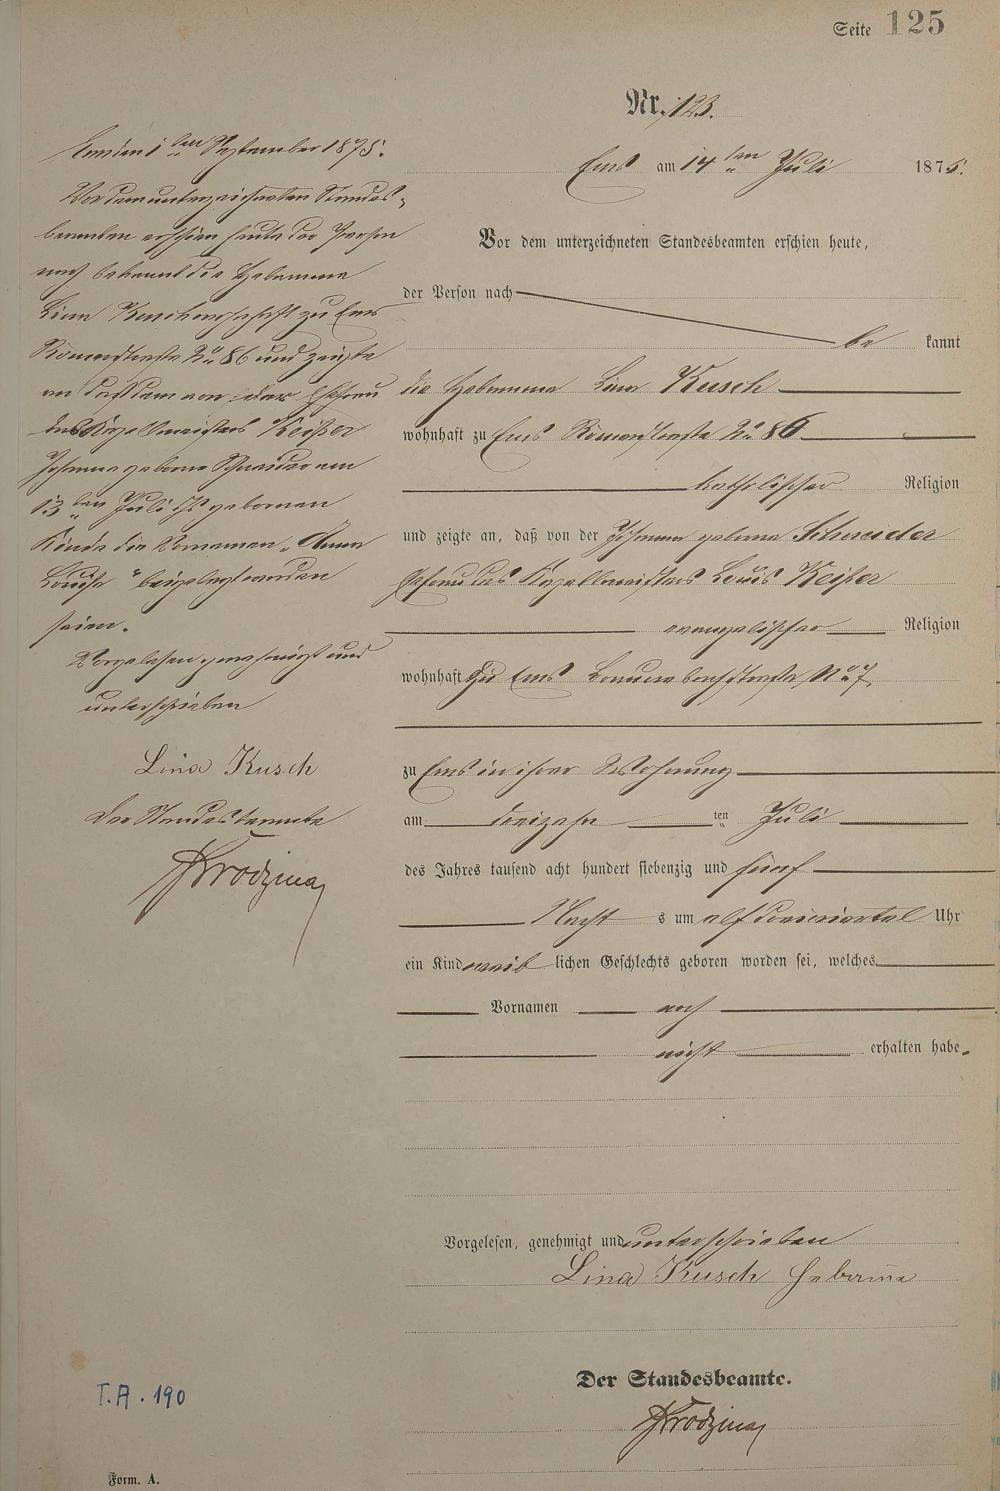 Seite 125
Nr. 123.
Ems am 14ten Juli 1875.
Vor dem unterzeichneten Standesbeamten erschien heute,
der Person nach
be kannt
die Hebamme Lina Kusch
wohnhaft zu Ems Römerstraße No 86
katholischer Religion
und zeigte an, daß von der Johanna geborne Schneider
Ehefrau des Kapellmeisters Louis Keißer
evangelischer Religion
wohnhaft zu Ems Braunebachstraße No 7
zu Ems in ihrer Wohnung
am dreizehn ten Juli
des Jahres tausend acht hundert siebenzig und fünf
Nacht s um elf dreiviertel Uhr
ein Kind weib lichen Geschlechts geboren worden sei, welches
Vornamen noch
nicht erhalten habe.
Vorgelesen, genehmigt und unterschrieben
Lina Kusch Hebamme
Der Standesbeamte.
Brodzina
Ems den 1ten September 1875.
Vor dem unterzeichneten Standes-
beamten erschien heute der Person
nach bekannt die Hebamme
Lina Kusch wohnhaft zu Ems
Römerstraße No 86 und zeigte
an daß dem von der Ehefrau
des Kapellmeisters Keißer
Johanna geborne Schneider am
13ten Juli gebornen
Kinde die Vornamen „Anna
Louise" beigelegt worden
seien.
Vorgelesen genehmigt und
unterschrieben
Lina Kusch
Der Standesbeamte
Brodzina
T.A. 190
Form. A.